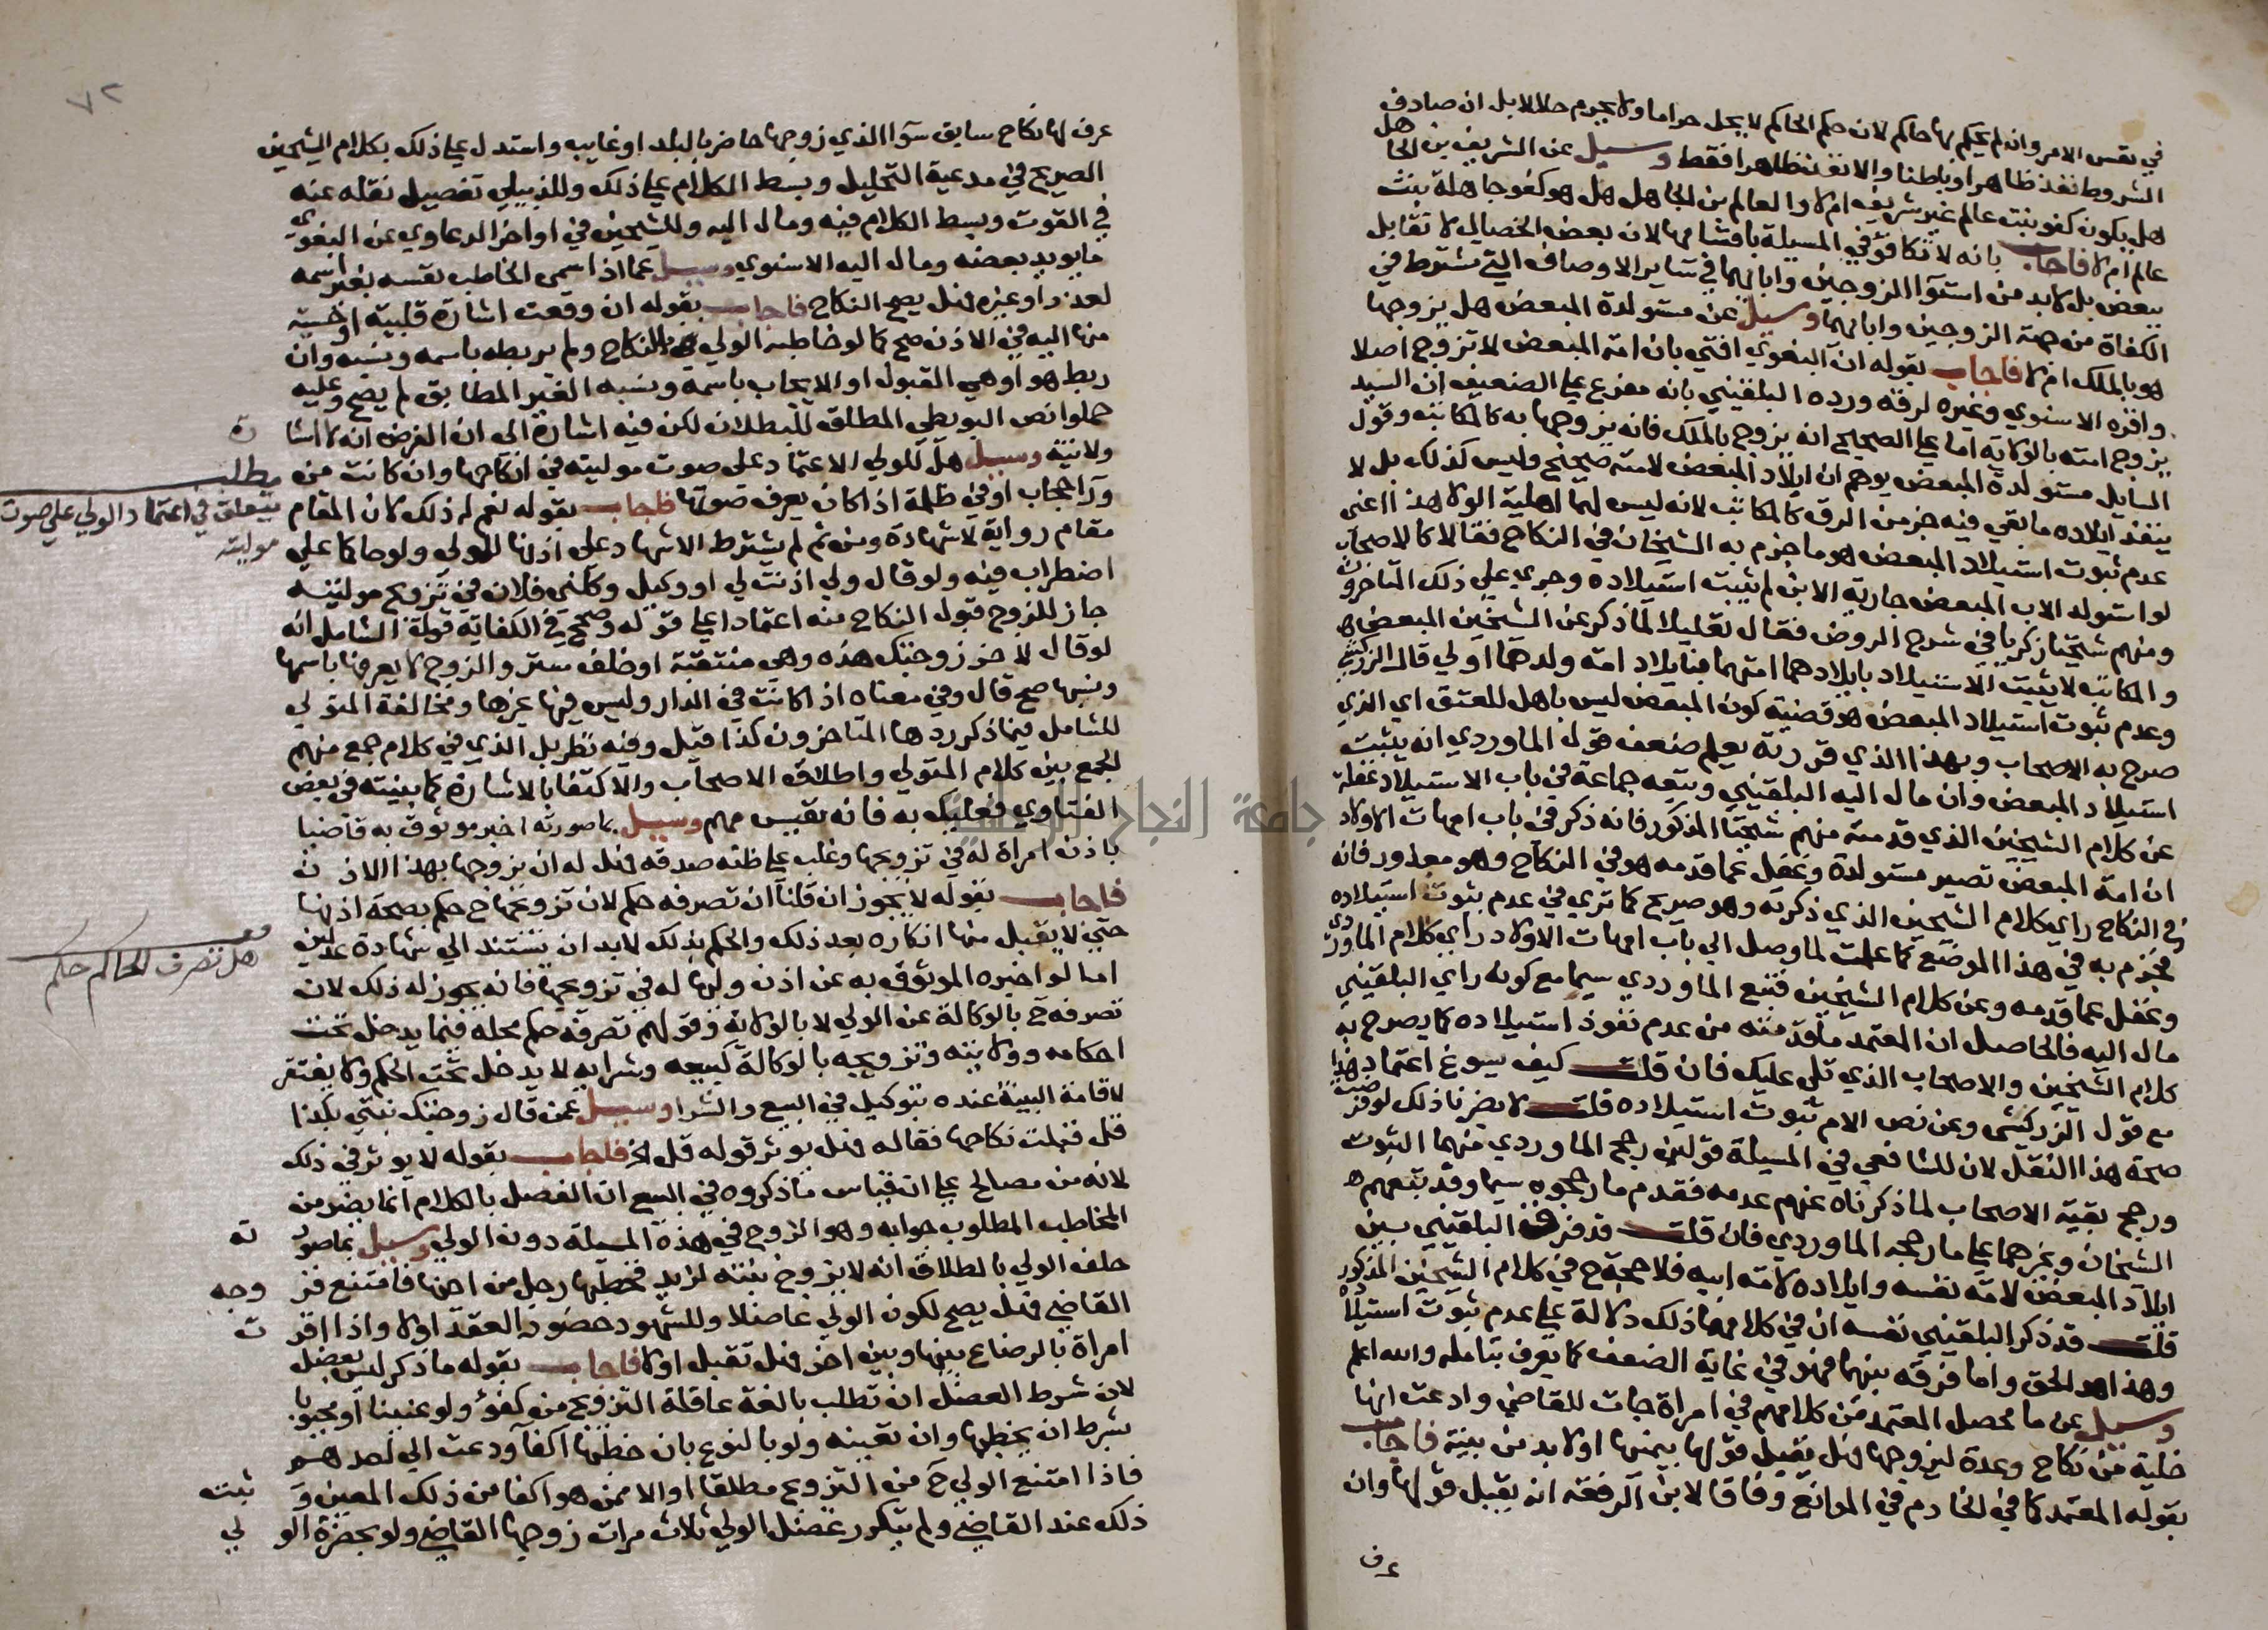 في نفس الامر وان لم يحكم بها حاكم لان حكم الحاكم لا يحل حراما ولا يحرم حلالا بل ان صادف
الشروط نفذ ظاهرا وباطنا والا نفذ ظاهرا فقط وسيل عن الشريف بن الجاهل
هل يكون كفو بنت عالم غير شريفه ام لا والعالم بن الجاهل هل هو كفو جاهلة بنت
عالم ام لا فاجاب بانه لا تكافؤ في المسيلة باقسامها لان بعض الخصال لا تقابل
ببعض بل لا بد من استوآ الزوجين وابايهما في ساير الاوصاف التي تشترط في
الكفاة من جهة الزوجين وابايهما وسيل عن مستولدة المبعض هل يزوجها
هو بالملك ام لا فاجاب بقوله ان البغوي افتى بان امة المبعض لا تزوج اصلا
واقره الاسنوي وغيره لرقه ورده البلقيني بانه مفرع علي الضعيف ان السيد
يزوج امته بالولاية اما علي الصحيح انه يزوج بالملك فانه يزوجها به كالمكاتبه وقول
السايل مستولدة المبعض يوهم ان ايلاد المبعض لامته صحيح وليس كذلك بل لا
ينفذ ايلاده ما بقي فيه جز من الرق كالمكاتب لانه ليس لهما اهلية الولا هذا اعني
عدم ثبوت استيلاد المبعض هو ما جزم به الشيخان في النكاح فقالا كالاصحاب
لو استولد الاب المبعض جارية الابن لم يثبت استيلاده وجري علي ذلك المتاخرون
ومنهم شيخنا زكريا في شرح الروض فقال تعليلا لما ذكر عن الشيخين المبعض
والمكاتب لا يثبت الاستيلاد بايلادهما امتهما فبايلاد امة ولدهما اولي قال الزركشي
وعدم ثبوت استيلاد المبعض هو قضية كون المبعض ليس باهل للعتق اي الذي
صرح به الاصحاب وبهذا الذي قررته يعلم ضعف قول الماوردي انه يثبت
استيلاد المبعض وان مال اليه البلقيني وتبعه جماعة في باب الاستيلاد غفلة
عن كلام الشيخين الذي قدمته منهم شيخنا المذكور فانه ذكر في باب امهات الاولاد
ان امة المبعض تصير مستولدة وغفل عما قدمه هو في النكاح وهو معذور فانه
في النكاح راي كلام الشيخين الذي ذكرته وهو صريح كما تري في عدم ثبوت استيلاده
فجزم به في هذا الموضع كما علمت لما وصل الي باب امهات الاولاد راي كلام الماوردي
وغفل عما قدمه وعن كلام الشيخين فتبع الماوردي سيما مع كونه راي البلقيني
مال اليه فالحاصل ان المعتمد ما قدمته من عدم نفوذ استيلاده كما يصرح به
كلام الشيخين والاصحاب الذي تلي عليك فان قلت كيف سوغ اعتماد هذا
مع قول الزركشي وعن نص الام ثبوت استيلاده قلت لا يضرنا ذلك لو فرضت
صحة هذا النقل لان للشافعي في المسيلة قولين رجح الماوردي منهما الثبوت
ورجح بقية الاصحاب لما ذكرناه عنهم عدمه فقدم ما رجحوه سيما وقد تبعهم
الشيخان وغيرهما علي ما رجحه الماوردي فان قلت قد فرق البلقيني بين
ايلاد المبعض لامة نفسه وايلاده لامة ابيه فلا حجة ح في كلام الشيخين المذكور
قلت قد ذكر البلقيني نفسه ان في كلامهما ذلك دلالة علي عدم ثبوت استيلاده
وهذا هو الحق واما فرقه بينهما فهو في غاية الضعف كما يعرف بتامله والله اعلم
وسيل عن ما محصل المعتمد من كلامهم في امراة جات للقاضي وادعت انها
خلية من نكاح وعدة ليزوجها هل يقبل قولها بيمينها او لا بد من بينة فاجاب
بقوله المعتمد كما في الخادم في الموانع وفاقا لابن الرفعة انه يقبل قولها وان
عرف
٧٢
عرف لها نكاح سابق سوآ الذي زوجها حاضر بالبلد او غايب واستدل علي ذلك بكلام الشيخين
الصريح في مدعية التحليل وبسط الكلام علي ذلك وللدبيلي تفصيل نقله عنه
في القوت وبسط الكلام فيه ومال اليه وللشيخين في اواخر الدعاوي عن البغوي
ما يويد بعضه ومال اليه الاسنوي وسيل عما اذا سمى الخاطب نفسه بغير اسمه
لعذر او غيره هل يصح النكاح فاجاب بقوله ان وقعت اشارة قلبية او حسية
منها اليه في الاذن صح كما لو خاطبه الولي بالنكاح ولم يربطه باسمه ونسبه وان
ربط هو او هي القبول او الايجاب باسمه ونسبه الغير المطابق لم يصح وعليه
حملوا نص البويطي المطلق للبطلان لكن فيه اشارة الى ان الفرض انه لا اشارة
ولا نية وسيل هل للولي الاعتماد على صوت موليته في انكاحها وان كانت من
ورآ حجاب او في ظلمة اذا كان يعرف صوتها فاجاب بقوله نعم له ذلك لان المقام
مقام رواية لا شهادة ومن ثم لم يشترط الاشهاد علي اذنها للولي ولو حاكما علي
اضطراب فيه ولو قال ولي اذنت لي او وكيل وكلني فلان في تزويج موليته
جاز للزوج قبول النكاح منه اعتمادا علي قوله وصحح في الكفاية قول الشامل انه
لو قال لاخر زوجتك هذه وهي منتقبة او خلف ستر والزوج لا يعرفها باسمها
ونسبها صح قال وفي معناه اذا كانت في الدار وليس فيها غيرها ومخالفة المتولي
للشامل فيما ذكر ردها المتاخرون كذا قيل وفيه نظر بل الذي في كلام جمع منهم
الجمع بين كلام المتولي واطلاق الاصحاب والاكتفا بالاشارة كما بينته في بعض
الفتاوي فعليك به فانه نفيس مهم وسيل بما صورته اخبر موثوق به قاضيا
باذن امراة له في تزويجها وغلب علي ظنه صدقه هل له ان يزوجها بهذا الاذن
فاجاب بقوله لا يجوز ان قلنا ان تصرفه حكم لان تزويجها ح حكم بصحة اذنها
حتي لا يقبل منها انكاره بعد ذلك والحكم بذلك لا بد ان يستند الي شهادة عدلين
اما لو اخبره الموثوق به عن اذن وليها له في تزويجها فانه يجوز له ذلك لان
تصرفه ح بالوكالة عن الولي لا بالولاية وقولهم تصرفه حكم محله فيما يدخل تحت
احكامه وولايته وتزويجه بالوكالة كبيعه وشرايه لا يدخل تحت الحكم ولا يفتقر
لاقامة البينة عنده بتوكيل في البيع والشرا وسيل عمن قال زوجتك بنتي بكذا
قل قبلت نكاحها فقاله هل يوثر قوله قل الخ فاجاب بقوله لا يوثر في ذلك
لانه من مصالح علي ان قياس ما ذكروه في البيع ان الفصل بالكلام انما يضر من
المخاطب المطلوب جوابه وهو الزوج في هذه المسيلة دون الولي وسيل بما صورته
حلف الولي بالطلاق انه لا يزوج بنته لزيد فخطبها رجل من اخيها فامتنع فزوجه
القاضي هل يصح لكون الولي عاضلا وللشهود حضور العقد او لا واذا اقرت
امراة بالرضاع بينها وبين اخر هل تقبل او لا فاجاب بقوله ما ذكر ليس بعضل
لان شرط العضل ان تطلب بالغة عاقلة التزويج من كفؤ ولو عنينا او مجبوبا
بشرط ان يخطبها وان تعينه ولو بالنوع بان خطبها اكفآ ودعت الي احدهم
فاذا امتنع الولي ح من التزويج مطلقا او الا ممن هو اكفا من ذلك المعين وثبت
ذلك عند القاضي ولم يتكرر عضل الولي ثلاث مرات زوجها القاضي ولو بحضرة الولي
مطلب
يتعلق في اعتماد الولي علي صوت
موليته
هل تصرف الحاكم حكم
جامعة النجاح الوطنية